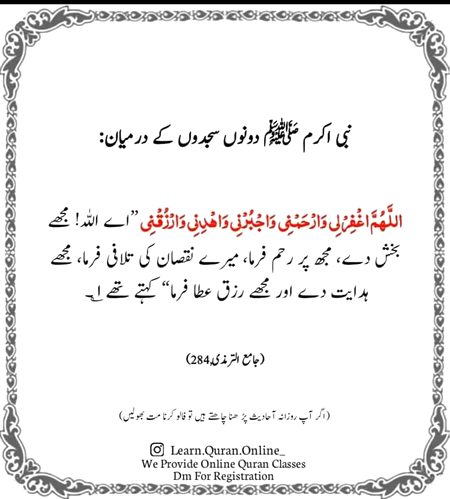 نبی اکرم ﷺ دونوں سجدوں کے درمیان:
اللَّهُمَّ اغْفِرْلِي وَارْحَمْنِي وَاجْبُرْنِي وَاهْدِنِي وَارْزُقْنِي ”اے اللہ! مجھے
بخش دے، مجھ پر رحم فرما، میرے نقصان کی تلافی فرما، مجھے
ہدایت دے اور مجھے رزق عطا فرما“ کہتے تھے ۱؎۔
(جامع الترمذی,284)
(اگر آپ روزانہ آحادیث پڑھنا چاھتے ہیں تو فالو کرنا مت بھولیں)
Learn.Quran.Online_
We Provide Online Quran Classes
Dm For Registration